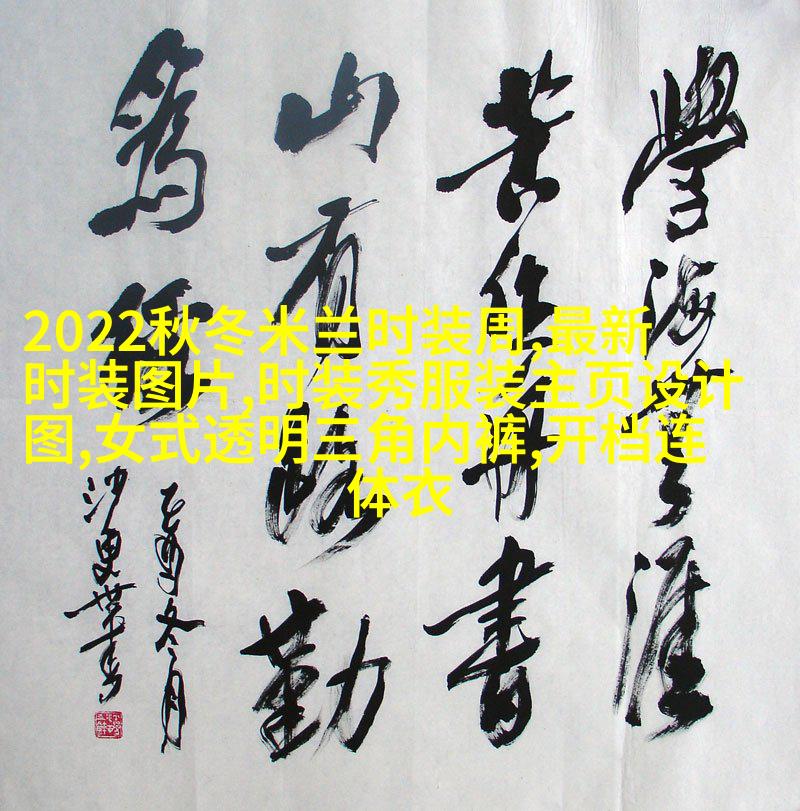 學海無涯
苦作舟書
山有路勤
為徑
乙酉冬月
2022秋冬米兰时装周,最新
时装图片,时装秀服装主页设计
图,女式透明三角内裤,开档连
体衣